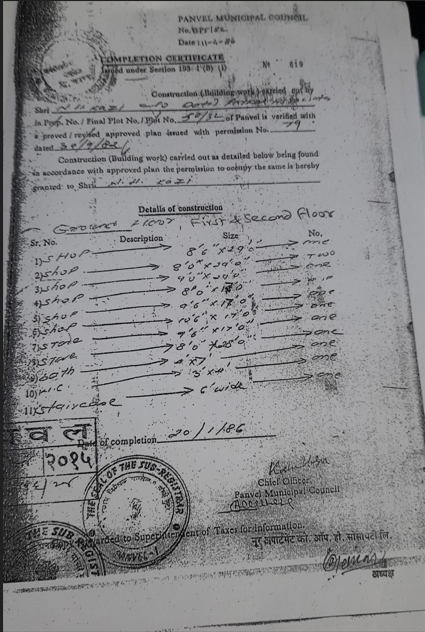 PANVEL MUNICIPAL COUNCIL
No.BPP/82
Date: 11-4-86
COMPLETION CERTIFICATE
Issued under Section 193 1 (B) (I)
No 619
Construction (Building work) carried out by
Shri N.H. KAZI
in Prop. No. / Final Plot No. / Plot No. 58/82 of Panvel is verified with
approved / revised approved plan issued with permission No. 79
dated 30/9/82
Construction (Building work) carried out as detailed below being found
in accordance with approved plan the permission to occupy the same is hereby
granted to Shri N.H. KAZI
Details of construction
Ground Floor, First & Second Floor
Sr. No. Description Size No.
1) SHOP 8'6" x 29'0" one
2) SHOP 8'0" x two
3) SHOP one
4) SHOP
5) SHOP 9'6" x 17'0"
6) SHOP 10'6" x 17'0" one
7) STORE 9'6" x 17'0" one
8) STORE one
9) Bath 4'x7' one
10) W.C one
11) Staircase 6' wide one
वल
Date of completion 20/1/86
२०१५
THE SEAL OF THE SUB-REGISTRAR
PANVEL-1
Chief Officer,
Panvel Municipal Council
Forwarded to Superintendent of Taxes for Information.
THE SUB REGIST
नूर अपार्टमेंट को. ऑप. हौ. सोसायटी लि.
अध्यक्ष